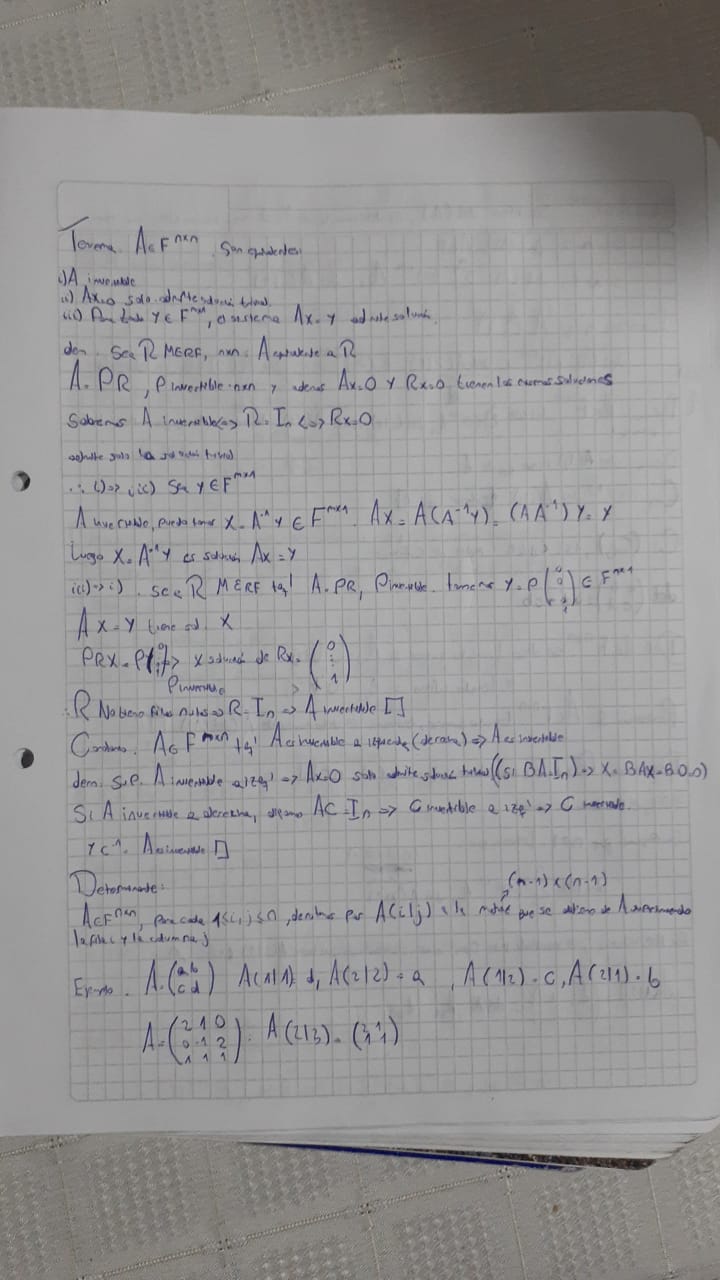 Teorema. A∈F^{n×n}. Son equivalentes:
i) A invertible
ii) Ax=0 solo admite solución trivial
iii) Para todo Y∈F^{n×1}, el sistema Ax=Y admite solución
dem. Sea R MERF, n×n. A equivalente a R
A=PR, P invertible n×n y además Ax=0 y Rx=0 tienen las mismas soluciones
Sabemos A invertible <=> R=In <=> Rx=0
admite solo la solución trivial
∴ i)=> iii) Sea Y∈F^{n×1}
A invertible, puedo tomar X=A^{-1}Y∈F^{n×1}. Ax=A(A^{-1}Y)=(AA^{-1})Y=Y
Luego X=A^{-1}Y es solución Ax=Y
iii)=> i). Sea R MERF tq' A=PR, P invertible. tomemos Y=P(0 0 1)∈F^{n×1}
Ax=Y tiene sol. X
PRX=P(0 ⋮ 1)=> x solución de Rx=(0 ⋮ 1)
P invertible
∴ R No tiene filas nulas => R=In => A invertible []
A∈F^{n×n} tq' A es invertible a izquierda (derecha) => A es invertible
dem. Sup. A invertable a izq' => Ax=0 solo admite soluc trivial ((Si BA=In) => X=BAX=B0=0)
Si A invertible a derecha, digamos AC=In => C invertible a izq' => C invertible
y C^{-1}=A es invertible []
Determinante:
(n-1)×(n-1)
A∈F^{n×n}, para cada 1≤i,j≤n, denotamos por A(i|j) a la matriz que se obtiene de A suprimiendo
la fila i y la columna j
Ejemplo. A=(a b c d) A(1|1)=d, A(2|2)=a, A(1|2)=c, A(2|1)=b
A=(2 1 0 0 -1 2 1 1 1). A(2|3)=(2 1 1 1)